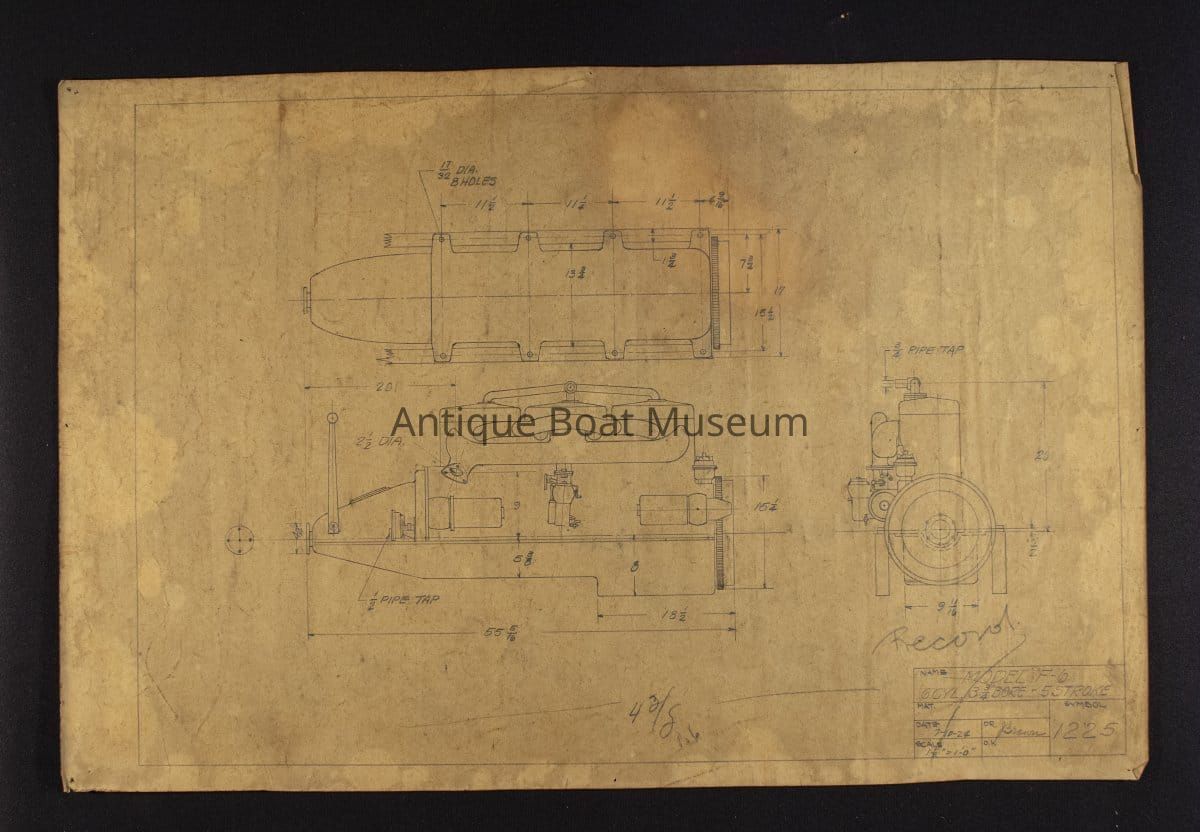 17/32 DIA.
8 HOLES
11 1/2
11 1/2
11 1/2
13 3/4
7 3/4
17
15 1/2
3/4 PIPE TAP
2 1/2 DIA.
Antique Boat Museum
9
15 1/4
5 3/8
8
1/2 PIPE TAP
18 1/2
9 11/16
55 5/16
Record
NAME MODEL F-6
6 CYL. 3 3/4 BORE - 5 STROKE
MAT. SYMBOL
DATE DR.
1225
SCALE 1 1/2" = 1'-0" O.K.